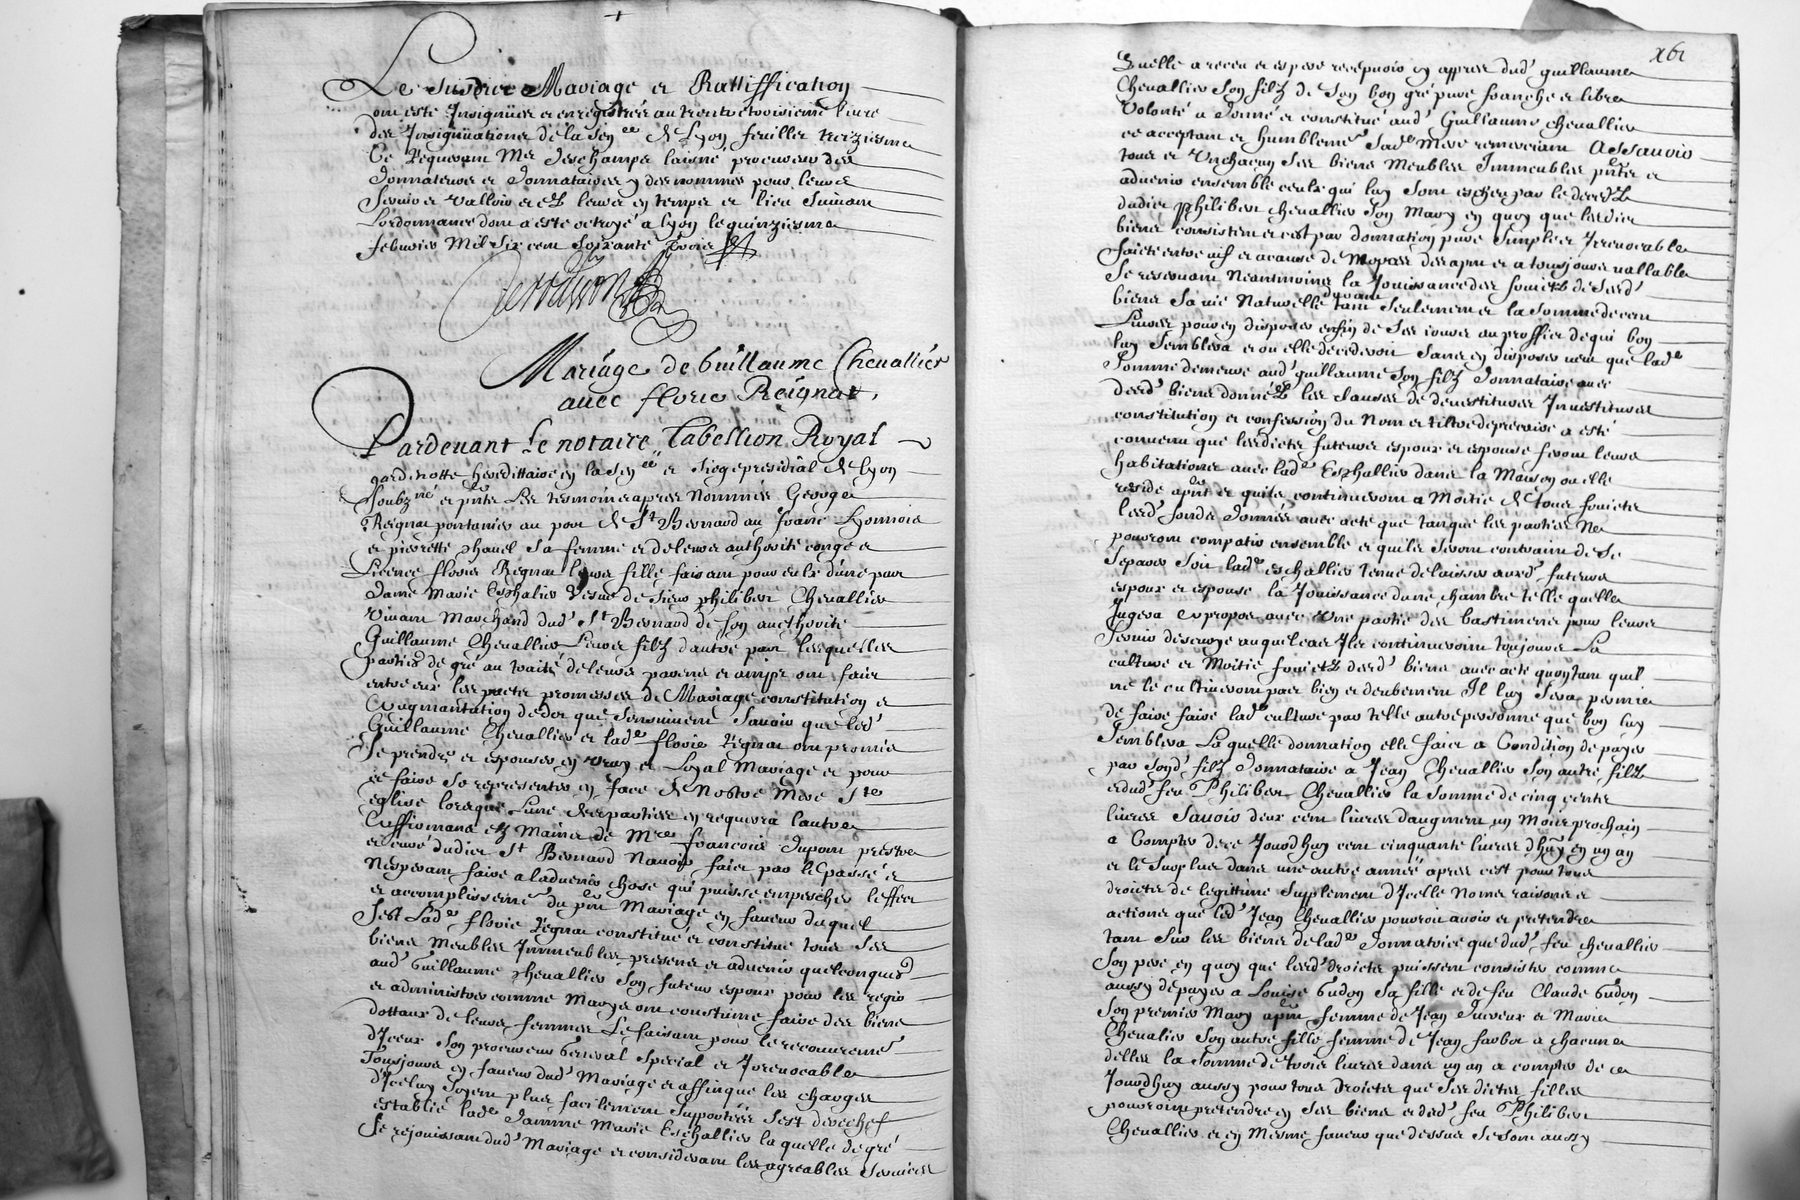 Le Susdict Mariage et Rattiffication
ont esté Insignüés et enregistrés au trente troisieme livre
des Insignüations de la Sen.ee de Lyon, feuillet treiziesme
Ce Requerant Mre deschamps laisné procureur des
donnateurs et donnataires y desnommes pour leur
Servir et valloir et es lieux en temps et lieu Suivant
Lordonnance dont a esté octroyé a Lyon le quinziesme
febvrier Mil Six cent Soixante trois
Mariage de Guillaume Chevallier
avec florie Reignat
Pardevant Le notaire Tabellion Royal
gardenotte heredittaire en la Sen.ee et Siege presidial de Lyon
Soubz.né et pñts Les tesmoins apres Nommés George
Reignat pontanier au port de St Bernard au franc Lyonnois
et pierrette Sa femme et de leurs authorité congé et
Licence florie Regnat leur fille faisant pour eulx d'une part
Dame Marie Eschalier vesve de Sieur philibert Chevallier
Vivant Marchand dud. St Bernard de Son aucthorité
Guillaume Chevallier Leur filz d'autre part lesquelles
parties de gré au traité de leurs parens et amys ont faict
entre eux les pactes promesses de Mariage constitution et
Augmantation de dot que Sensuivent Savoir que led.
Guillaume Chevallier et lad.e florie Regnat ont promis
Se prendre et espouser en vray et Loyal Mariage et pour
ce faire Se representer en face de Nostre Mere Ste
eglise lorsque Lune des parties en requerra lautre
Affirmans es Mains de Mre francois dupont prestre
et curé dudict St Bernard Navoir faict par le passé et
Nesperant faire a ladvenir chose qui puisse empescher leffect
et accomplissement du pñt Mariage en faveur duquel
Sest Lad.e florie Regnat constitué et constitue tous Ses
biens Meubles Immeubles presens et advenir quelconques
aud. Guillaume Chevallier Son futeur espoux pour les regir
et administrer comme Marys ont coustume faire des biens
dottaux de leurs femmes Le faisant pour le recouvrement
d'Iceux Son procureur General Special et Irrevocable
Tousjours en faveur dud. Mariage et affin que les charges
d'Iceluy Soyent plus facilement Supportées Sest derechef
establie lad.e Damme Marie Eschallier laquelle de gré
Se rejouissant dud. Mariage et considerant les agreables Services
x61
Quelle a receu et espere recepvoir cy appres dud. guillaume
Chevallier Son filz de Son bon gré pure franche et libre
Volonté a donné et constitué aud. Guillaume Chevallier
ce acceptant et humblement Sad.e Mere remerciant Assavoir
tous et Unchacun Ses biens Meubles Immeubles pñts et
advenir ensemble ceulx qui luy Sont escheu par le deceds
dudict Philibert Chevallier Son Mary en quoy que lesdicts
biens consistent et cest par donnation pure Simple et Irrevocable
faicte entre vif et a cause de Nopces des apñt et a tousjours vallable
Se reservant Neantmoins la Jouissance des fruictz de Sesd.
biens Sa vie Naturelle durant tant Seulement et la Somme de cent
Livres pour en disposer enfin de Ses jours au proffict de qui bon
luy Semblera et ou elle decederoit Sans en disposer veut que lad.e
Somme demeure aud. guillaume Son filz donnataire avec
desd. biens donnés Les clauses de devestitures Investitures
constitution et confession du Nom et tiltre de precaire a esté
convenu que lesdicts futeurs espoux et espouse feront leurs
habitations avec lad.e Eschallier dans la Maison ou elle
reside apñt et quils continueront a Moitié de tous fruicts
lesd. fonds donnés avec acte que tanque les parties Ne
pourront compatir ensemble et quils Seront contraint de Se
Separer Soit lad.e eschallier tenue delaisser ausd. futeurs
espoux et espouse la Jouissance dune chambre telle quelle
Jugera Apropos avec Une partie des bastimens pour leurs
Servir desuroye auquel cas Ils continueront toujours La
culture et Moitié fruictz desd. biens avec acte quoy tant quil
ne le cultiveront pas bien et deubement Il luy Sera permis
de faire faire lad.e culture par telle autre personne que bon luy
Semblera Laquelle donnation elle faict a Condition de payer
par Sond. filz donnataire a Jean Chevallier Son autre filz
et dud. feu Philibert Chevallier la Somme de cinq cents
livres Savoir deux cent livres daugment un Mois prochain
a Compter de ce Jourdhuy cent cinquante livres dhuy en un an
et le Surplus dans une autre année apres cest pour tous
droicts de legittime Supplement d'Icelle Noms raisons et
actions que led. Jean Chevallier pouvoit avoir et pretendre
tant Sur les biens de lad.e donnatrice que dud. feu chevallier
Son pere en quoy que lesd. droicts puissent consister comme
aussy de payer a Louise Gudon Sa fille et de feu Claude Gudon
Son premier Mary apñt femme de Jean et Marie
Chevalier Son autre fille femme de Jean a chacune
delles la Somme de trois livres dans un an a compter de ce
Jourdhuy aussy pour tous droicts que Ses dictes filles
pourroint pretendre en Ses biens et dud. feu Philibert
Chevallier et en Mesme faveur que dessus Se Sont aussy